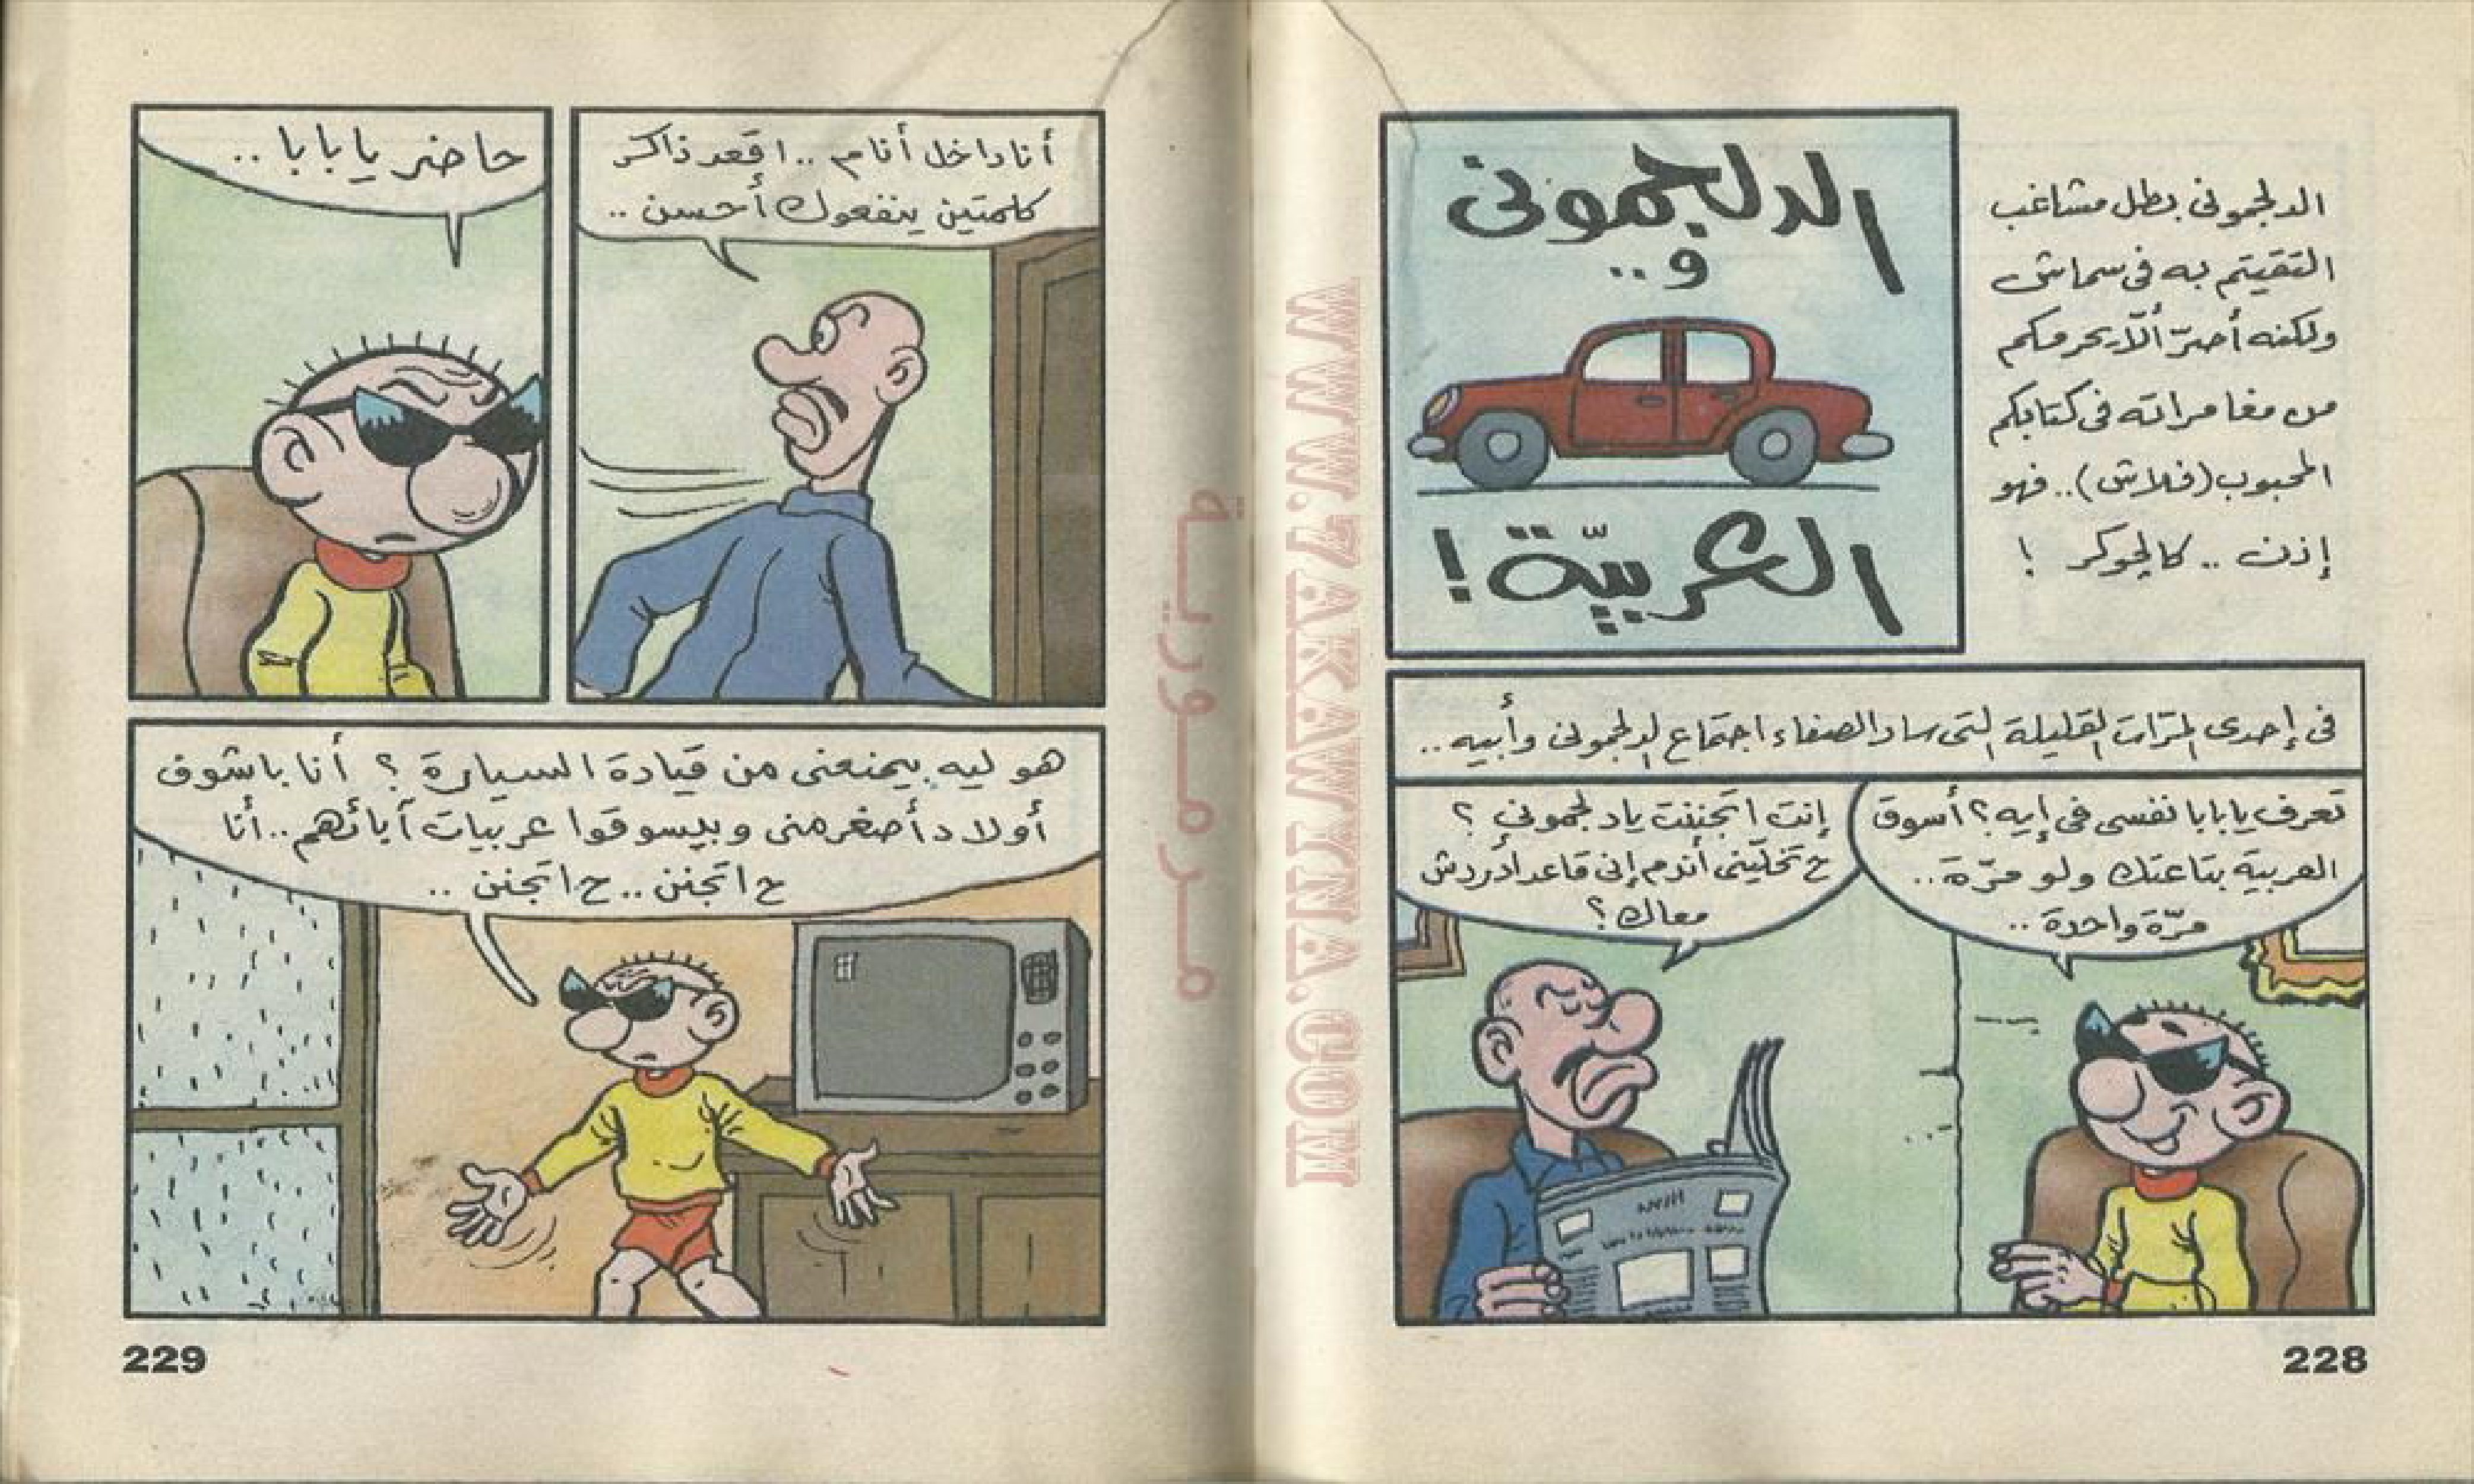 الدلجمونى بطل مشاغب
التقيتم به فى سماش
ولكنه أصرّ ألّا يحرمكم
من مغامراته فى كتابكم
المحبوب (فلاش).. فهو
إذن .. كالجوكر !
الدلجمونى
و..
العربيّة !
فى إحدى المرّات القليلة التى ساد الصفاء اجتماع الدلجمونى وأبيه ..
تعرف يا بابا نفسى فى إيه ؟ أسوق
العربية بتاعتك ولو مرّة ..
مرّة واحدة ..
إنت اتجننت يا دلجمونى ؟
ح تخلّينى أندم إنى قاعد أدردش
معاك ؟
228
أنا داخل أنام .. اقعد ذاكر
كلمتين ينفعوك أحسن ..
حاضر يا بابا ..
هو ليه بيمنعنى من قيادة السيارة ؟ أنا باشوف
أولاد أصغر منى وبيسوقوا عربيات آبائهم .. أنا
ح اتجنن .. ح اتجنن ..
229
مرمورية